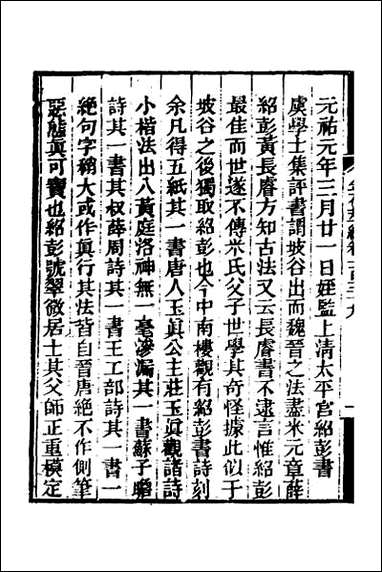 元祐元年三月廿一日姪監上清太平宮紹彭書
虞學士集評書謂坡谷出而魏晉之法盡米元章薛
紹彭黃長睿方知古法又云長睿書不逮言惟紹彭
最佳而世遂不傳米氏父子世學其奇怪據此似于
坡谷之後獨取紹彭也今中南樓觀有紹彭書詩刻
余凡得五紙其一書唐人玉眞公主莊玉眞觀諸詩
小楷法出入黃庭洛神無一毫滲漏其一書蘇子瞻
詩其一書其叔薛周詩其一書王工部詩其一書一
絶句字稍大或作眞行其法皆自晉唐絶不作側筆
惡態眞可寶也紹彭號翠微居士其父師正重模定